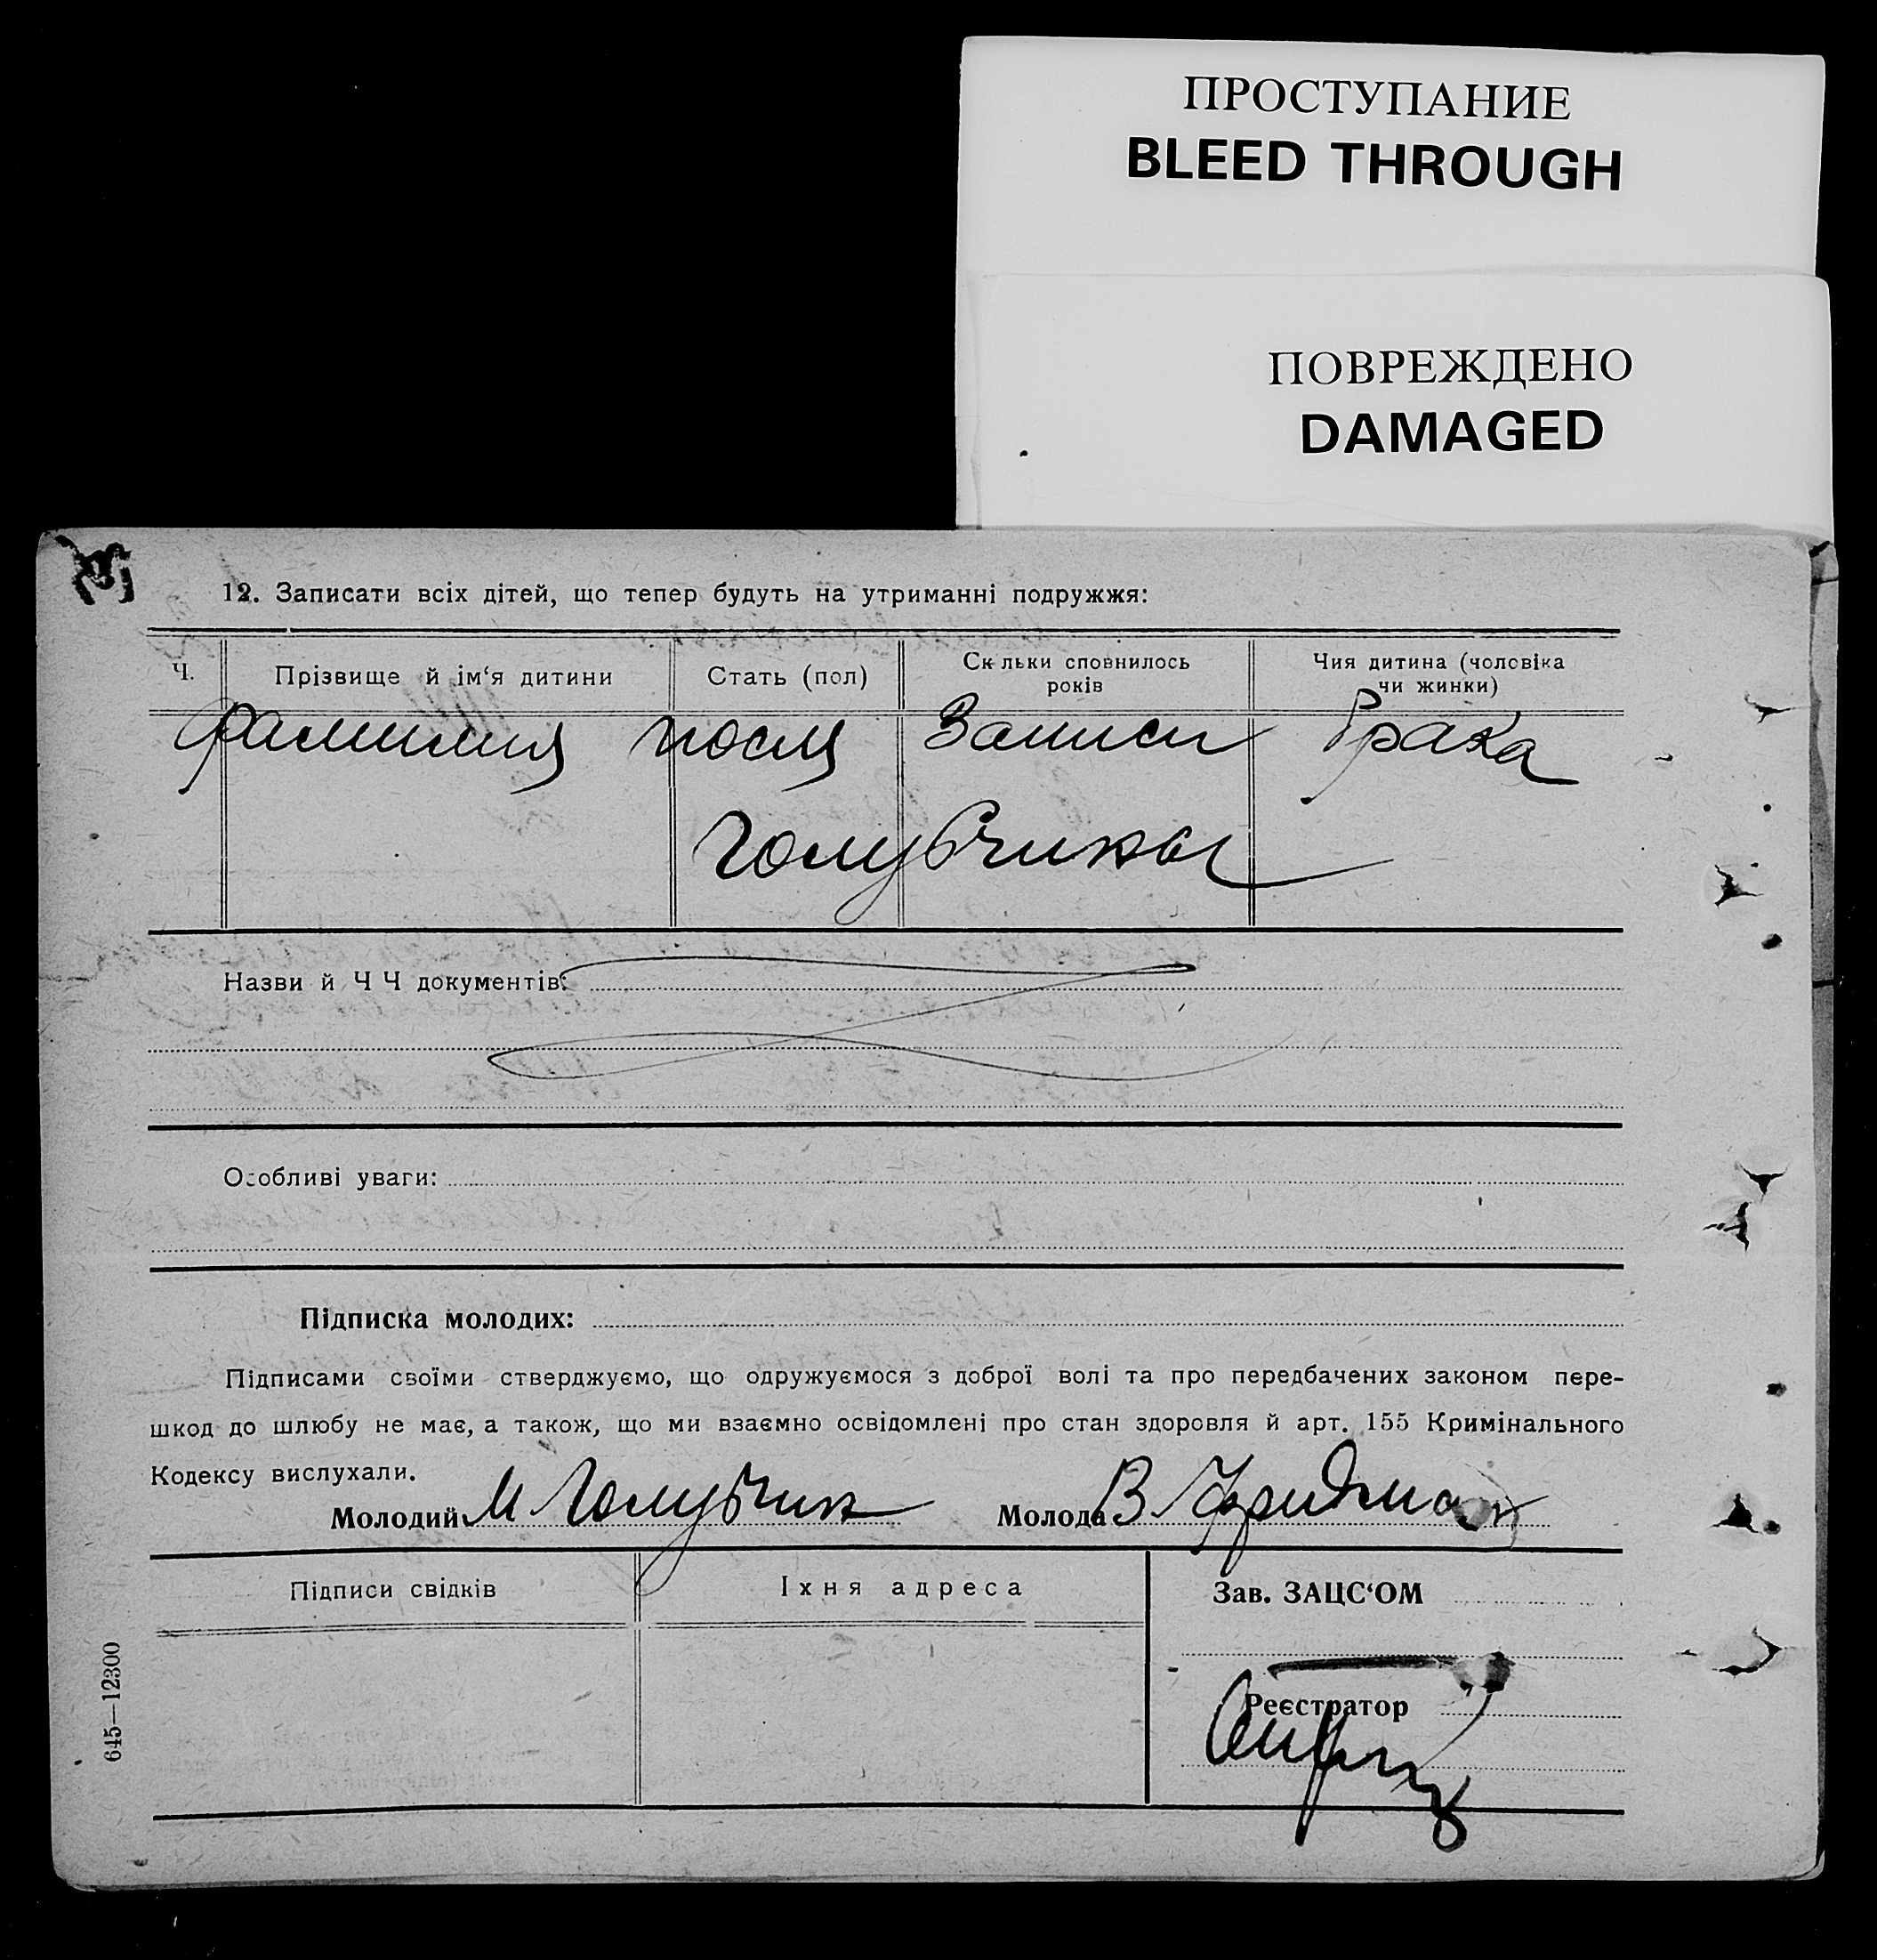 ПРОСТУПАНИЕ
BLEED THROUGH
ПОВРЕЖДЕНО
DAMAGED
12. Записати всіх дітей, що тепер будуть на утриманні подружжя:
Ч. Прізвище й ім‘я дитини Стать (пол) Ск льки сповнилось років Чия дитина (чоловіка чи жинки)
фамилия посля Записи брака
Голубчики
Назви й Ч Ч документів:
Особливі уваги:
Підписка молодих:
Підписами своїми стверджуємо, що одружуємося з доброї волі та про передбачених законом пере-
шкод до шлюбу не має, а також, що ми взаємно освідомлені про стан здоровля й арт. 155 Кримінального
Кодексу вислухали.
Молодий М Голубчик Молода В Фридман
Підписи свідків Їхня адреса Зав. ЗАЦС‘ОМ
Реєстратор
645—12300